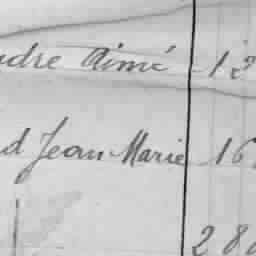 ndre Aimé 13
d Jean Marie 16
28